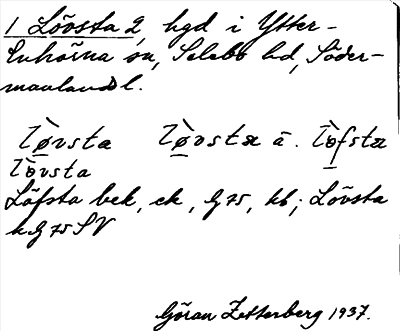 1 Lövsta 2, hgd i Ytter-
Enhörna sn, Selebo hd, Söder-
manland l.
l`øvsta l`øvstæ ä. l`øfstæ
l`øvsta
Löfsta bek, ek, G75, kb; Lövsta
k G75 SV
Göran Zetterberg 1937.